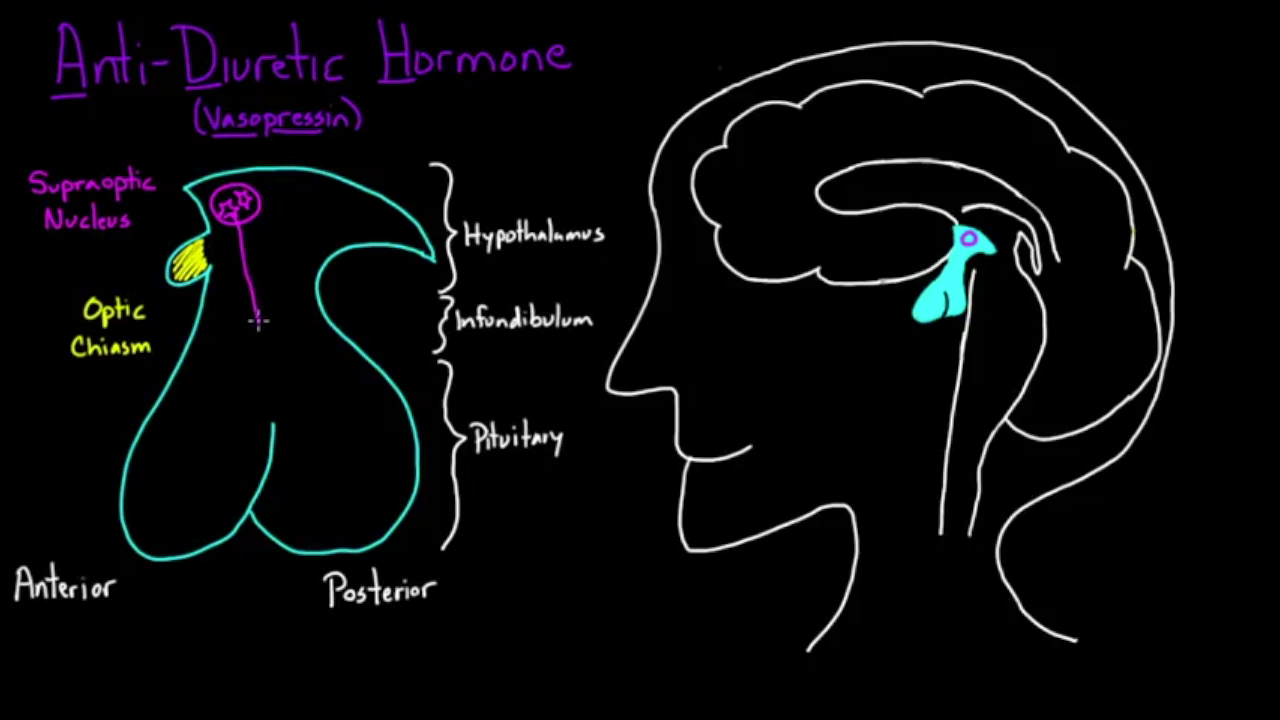 Anti-Diuretic Hormone
(Vasopressin)
Supraoptic
Nucleus
Hypothalamus
Optic
Chiasm
Infundibulum
Pituitary
Anterior
Posterior